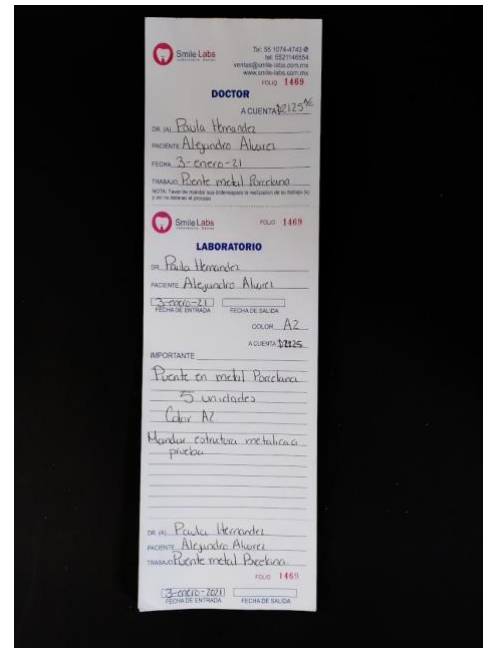 Smile Labs
Laboratorio Dental
Tel: 55 1074-4743
tel: 5521146554
ventas@smile-labs.com.mx
www.smile-labs.com.mx
FOLIO 1469
DOCTOR
A CUENTA $2125
DR. (A) Paula Hernandez
PACIENTE Alejandro Alvarez
FECHA 3-enero-21
TRABAJO Puente metal Porcelana
NOTA: Favor de mandar sus ordenes para la realización de su trabajo (s)
y así no detener el proceso
Smile Labs
Laboratorio Dental
FOLIO 1469
LABORATORIO
DR. Paula Hernandez
PACIENTE Alejandro Alvarez
3-enero-21
FECHA DE ENTRADA FECHA DE SALIDA
COLOR A2
A CUENTA $2125
IMPORTANTE
Puente en metal Porcelana
5 unidades
Color A2
Mandar estructura metalica a
prueba
DR. (A) Paula Hernandez
PACIENTE Alejandro Alvarez
TRABAJO Puente metal Porcelana
FOLIO 1469
3-enero-2021
FECHA DE ENTRADA FECHA DE SALIDA